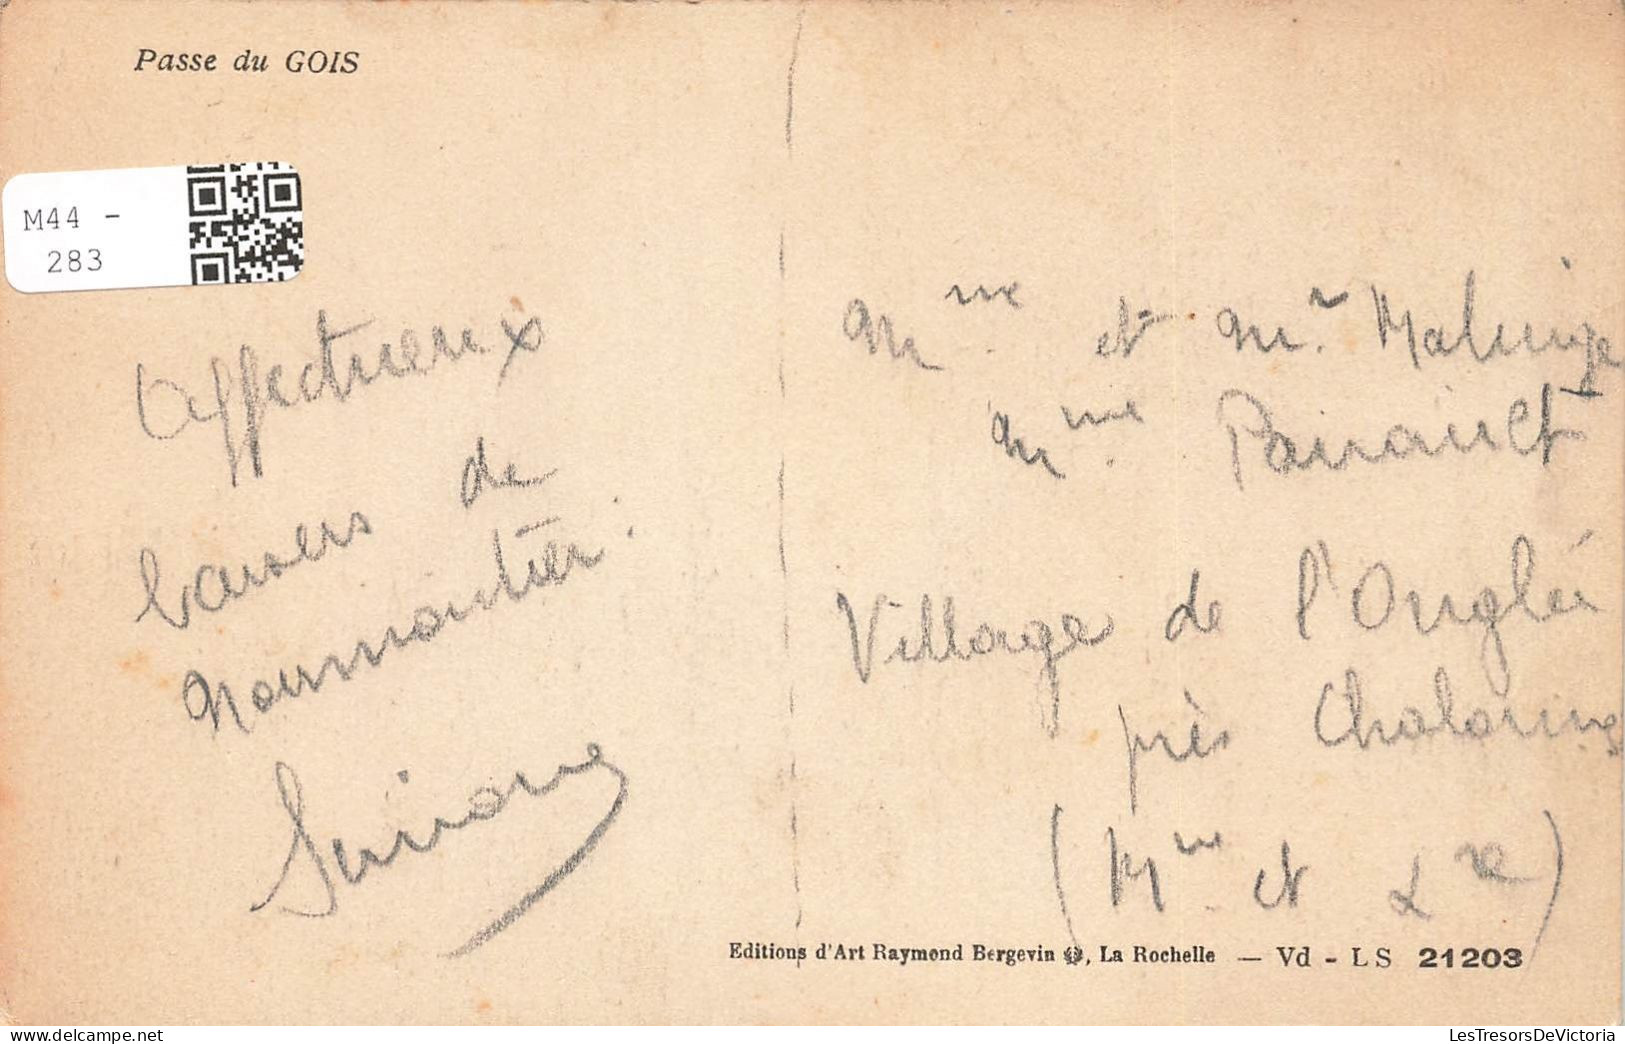 Passe du GOIS
M44 -
283
Affectueux
baisers de
Noirmoutier.
Simone
Mme et Mr. Malinge
Mme
Village de l'Onglée
près Chalonnes
(M et L re)
Editions d'Art Raymond Bergevin, La Rochelle — Vd - LS 21203
LesTresorsDeVictoria
delcampe.net